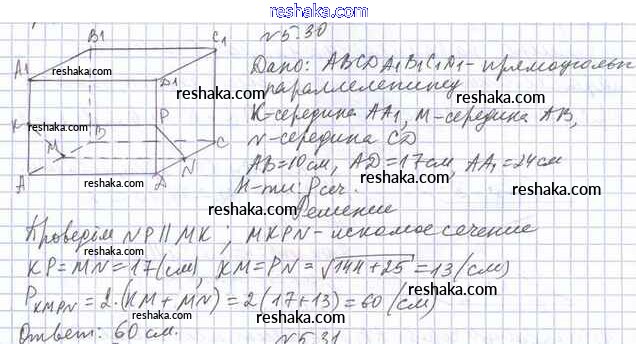 www.gdz.cool
№5.30
B1
C1
A1
D1
K
P
M
B
C
N
A
D
Дано: ABCDA1B1C1D1 - прямоугольн
параллелепипед
K-середина AA1, M-середина AB,
N-середина CD
AB=10см, AD=17см, AA1=24см
Н-ти: Pсеч.
Решение
Проведём NP || MK ; MKPN - искомое сечение
KP = MN = 17 (см), KM = PN = √144+25 = 13 (см)
PKMPN = 2·(KM + MN) = 2(17+13) = 60 (см)
Ответ: 60 см.
№5.31
reshaka.com
reshaka.com
reshaka.com
reshaka.com
reshaka.com
reshaka.com
reshaka.com
reshaka.com
reshaka.com
reshaka.com
reshaka.com
reshaka.com